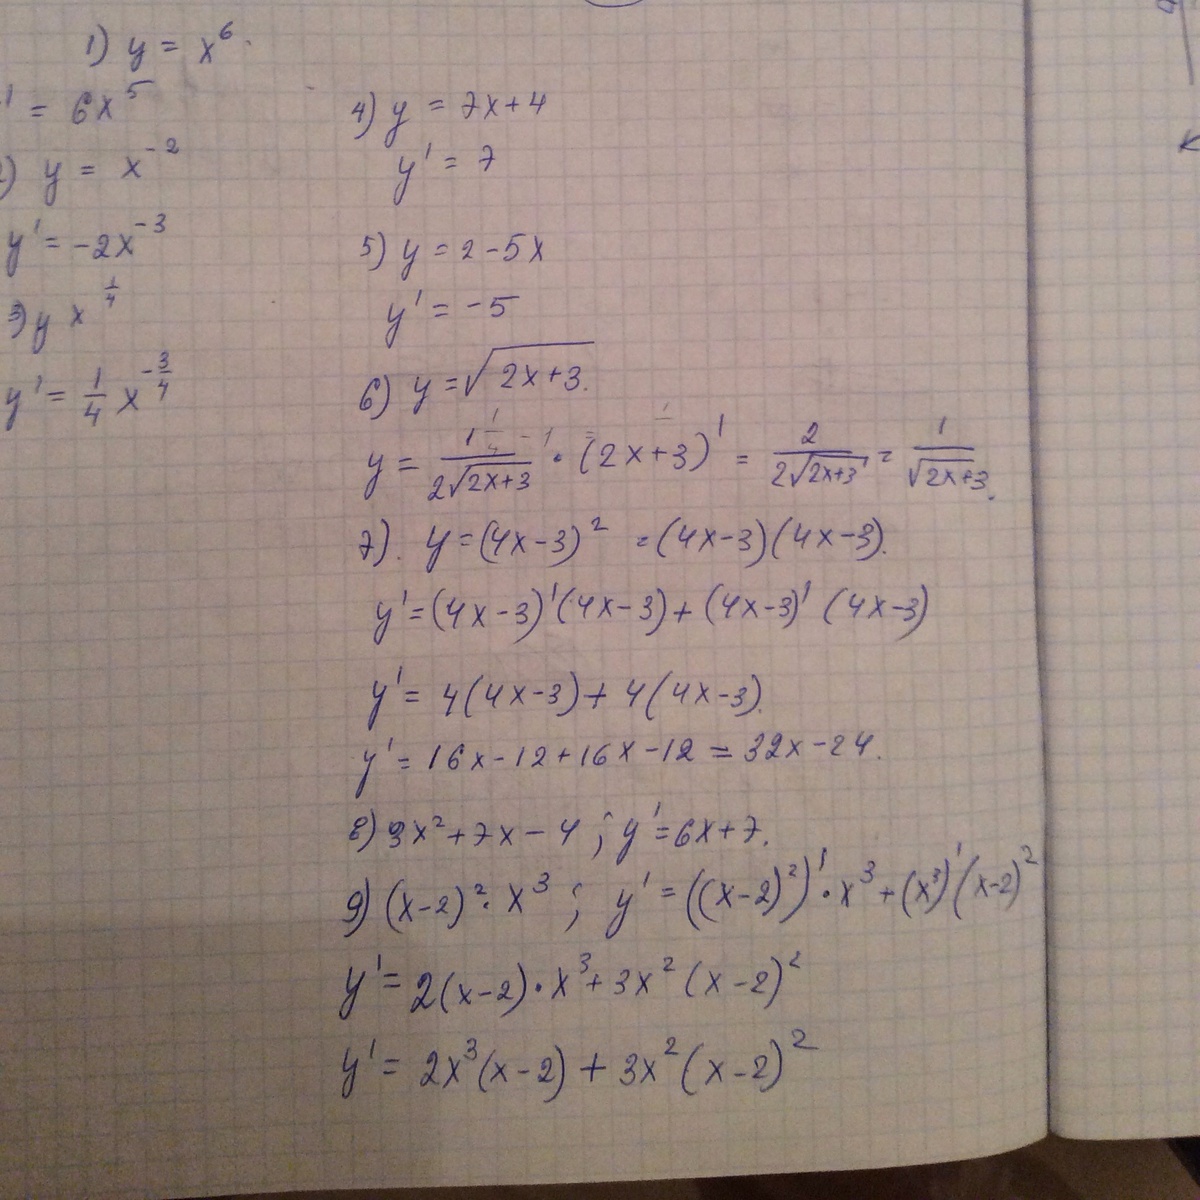 1) y = x⁶.
' = 6x⁵
2) y = x⁻²
y' = -2x⁻³
3) y x^(1/4)
y' = 1/4 x^(-3/4)
4) y = 7x+4
y' = 7
5) y = 2-5x
y' = -5
6) y = √(2x+3).
y = 1/(2√(2x+3)) · (2x+3)' = 2/(2√(2x+3)) = 1/√(2x+3).
7). y = (4x-3)² = (4x-3)(4x-3).
y' = (4x-3)'(4x-3) + (4x-3)' (4x-3)
y' = 4(4x-3) + 4(4x-3).
y' = 16x-12+16x-12 = 32x-24.
8) 3x²+7x-4 ; y' = 6x+7.
9) (x-2)² · x³ ; y' = ((x-2)²)' · x³ + (x³)' (x-2)²
y' = 2(x-2) · x³ + 3x² (x-2)²
y' = 2x³(x-2) + 3x² (x-2)²